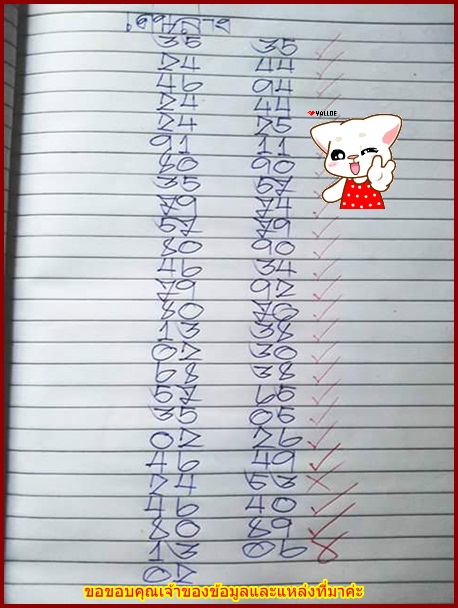 35 35 ✓
24 44 ✓
46 94 ✓
24 44 ✓
24 25
91 11
80 90
35 57
79 74 ✓
57 79 ✓
80 90 ✓
46 34 ✓
79 92 ✓
80 76 ✓
13 38 ✓
02 30 ✓
68 38 ✓
57 65 ✓
35 05 ✓
02 26 ✓
46 49 ✓
24 53 ✗
46 40 ✓
80 89 ✓
13 06
02
❤YALLOE
ขอขอบคุณเจ้าของข้อมูลและแหล่งที่มาค่ะ